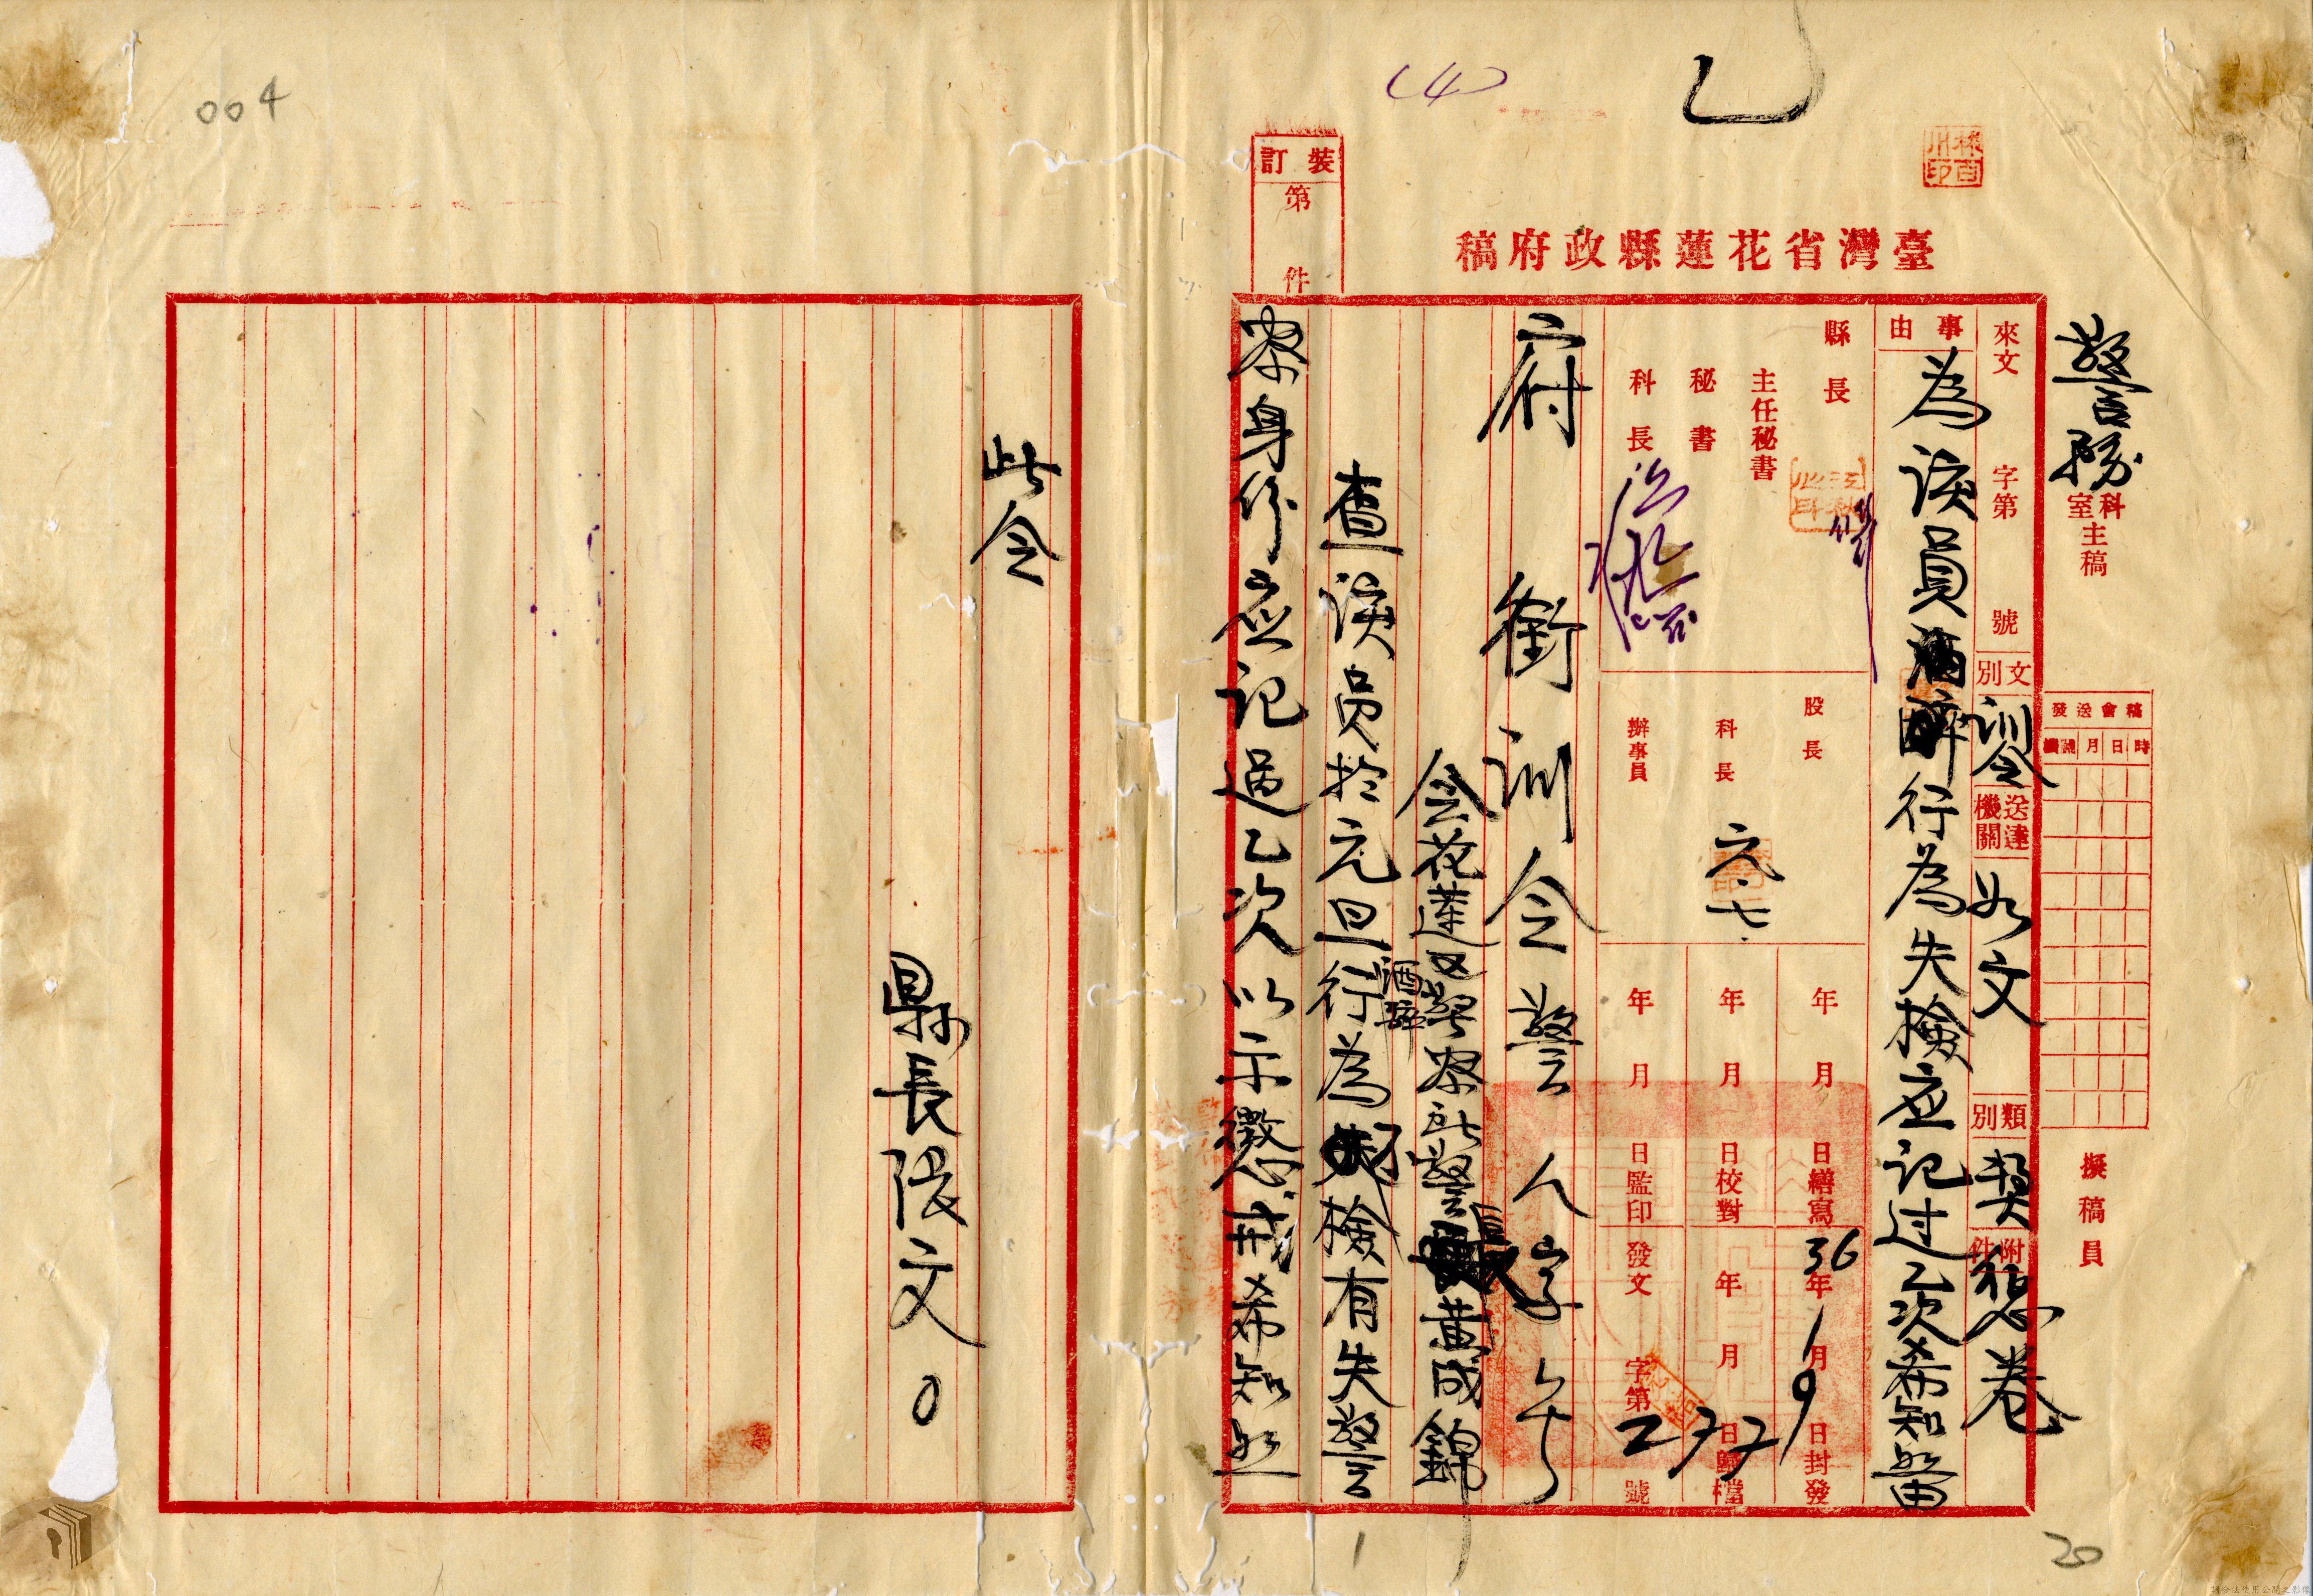 004
(4)
乙
臺灣省花蓮縣政府稿
裝訂
第 件
警務
科室主稿
擬稿員
稿會送發
時日月
來文 字第 號
文別 訓令
送達機關 如文
類別 奬懲卷
附件
事由
為該員酒醉行為失檢应记过乙次希知照由
縣長
主任秘書
秘書
科長
股長
科長
六.七.
辦事員
年 月 日繕寫
年 月 日校對
年 月 日監印
36年1月9日封發
年 月 日歸檔
發文 字第 號
府銜訓令 警人字
令花蓮区警察所警長黃成錦
查該員於元旦酒醉行為不檢有失警
察身份应记過乙次以示懲戒希知照
此令
縣長張文。
1
20